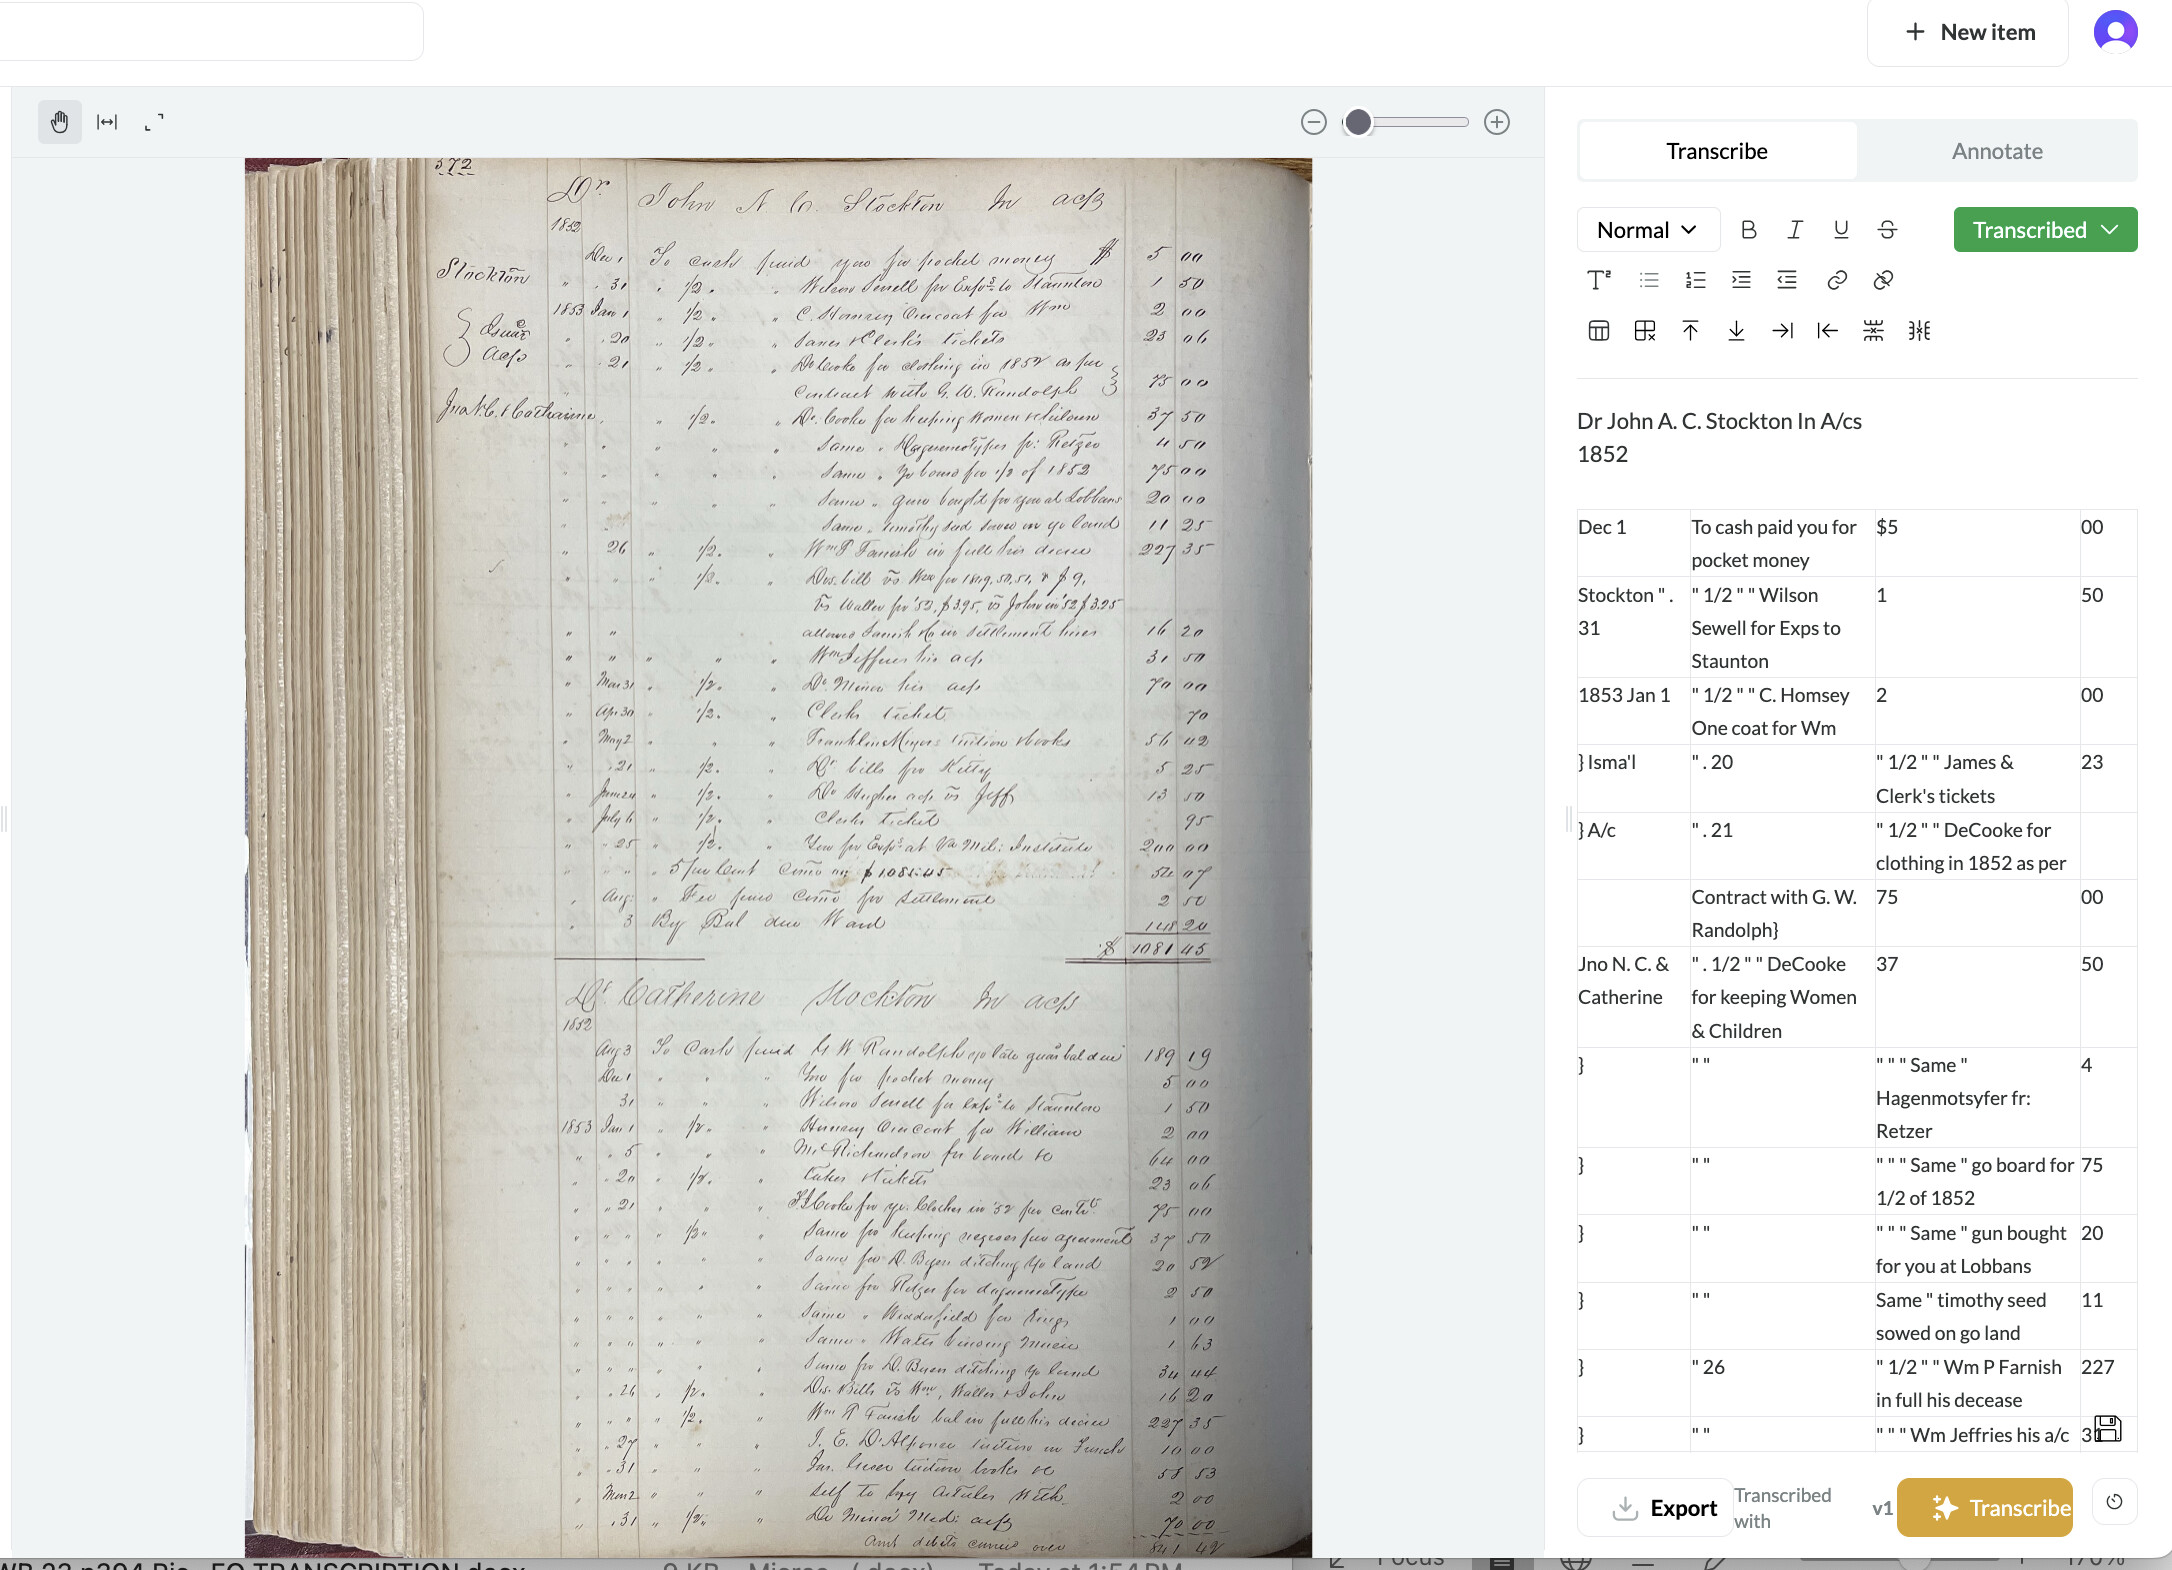 New item
Transcribe
Annotate
Normal
B
I
U
S
Transcribed
572
Dr John N C. Stockton In a/cs
1852
Stockton
Dec 1 To cash paid you for pocket money $ 5 00
" . 31 " 1/2 . " Wilson Sewell for Exps to Staunton 1 50
1853 Jan 1 " 1/2 " " C. Hornsey One coat for Wm 2 00
" . 20 " 1/2 . " Clerk's tickets 23 06
a/cs
" . 21 " 1/2 . " Dr Cooke for clothing in 1852 as per
contract with G. W. Randolph } 75 00
Jno N. C. & Catharine
" 1/2 . " Dr. Cooke for keeping women & children 37 50
Same " Daguerreotypes pr: Retzer 4 50
Same " Yr board for 1/2 of 1852 75 00
Same " gun bought for you at Lobbans 20 00
Same " timothy seed sowed on yr land 11 25
" 26 " 1/2 . " Wm P Farish in full his decree 227 35
" " " 1/3 . " Drs. bill vs Wm for 1849, 50, 51, & $9,
vs Walter for '52, $3.95, vs John in '52 $3.25
allowed Farish &c in settlement hires 16 20
" " " " " Wm Jeffries his a/c 31 50
" Mar 31 . 1/2 . " Dr. Minor his a/c 70 00
" Apr 30 " 1/2 . " Clerks ticket 70
" May 2 " " " Franklin Minor tuition & books 56 42
" . 21 " 1/2 . " Dr bills for Kitty 5 25
" June 24 " 1/2 . " Dr Hughes a/c vs Jeff 13 50
" July 6 " 1/2 . " Clerks ticket 95
" " 25 " 1/2 . " You for Exps at Va Mil: Institute 200 00
" " " " 5 per Cent Coms on $1081.45 54 07
" Aug: " Fee paid Coms for settlement 2 50
" 3 By Bal due Ward 148 20
$ 1081 45
Dr Catherine Stockton In a/cs
1852
Aug 3 To Cash paid G W Randolph yr late guar bal due 189 19
Dec 1 " " " You for pocket money 5 00
31 " " " Wilson Sewell for Exps to Staunton 1 50
1853 Jan 1 " 1/2 . " Hornsey One Coat for William 2 00
" . 5 " " " Mrs Richardson for board &c 64 00
" . 20 " 1/2 . " tickets 23 06
" " 21 " " " Cooke for yr. Clothes in '52 per Contt. 75 00
" " " " 1/3 " " Same for keeping negroes per agreement 37 50
" " " " " " Same for D. Byers ditching Yr land 20 52
" " " " " " Same for Retzer for daguerreotype 2 50
" " " " " " Same " for Rings 1 00
" " " " " " Same " binding Music 1 63
" " " " " " Same for D. Byers ditching Yr land 34 44
" . 26 " 1/2 . " Drs. Bills vs Wm, Walter & John 16 20
" " " " 1/2 . " Wm P Farish bal in full his decree 227 35
" . 27 " " " J. E. D'Alfonce tuition in French 10 00
" . 31 " " " tuition books &c 58 53
" Mar 2 " " " Self to buy articles with 2 00
" . 31 " 1/2 . " Dr Minor Med: a/c 70 00
Amt debits carried over 841 42
Dr John A. C. Stockton In A/cs
1852
Dec 1 To cash paid you for pocket money $5 00
Stockton " . 31 " 1/2 " " Wilson Sewell for Exps to Staunton 1 50
1853 Jan 1 " 1/2 " " C. Homsey One coat for Wm 2 00
} Isma'l " . 20 " 1/2 " " James & Clerk's tickets 23
} A/c " . 21 " 1/2 " " DeCooke for clothing in 1852 as per
Contract with G. W. Randolph} 75 00
Jno N. C. & Catherine " . 1/2 " " DeCooke for keeping Women & Children 37 50
} " " " " " Same " Hagenmotsyfer fr: Retzer 4
} " " " " " Same " go board for 1/2 of 1852 75
} " " " " " Same " gun bought for you at Lobbans 20
} " " Same " timothy seed sowed on go land 11
} " 26 " 1/2 " " Wm P Farnish in full his decease 227
} " " " " " Wm Jeffries his a/c
Export
Transcribed with
v1
Transcribe